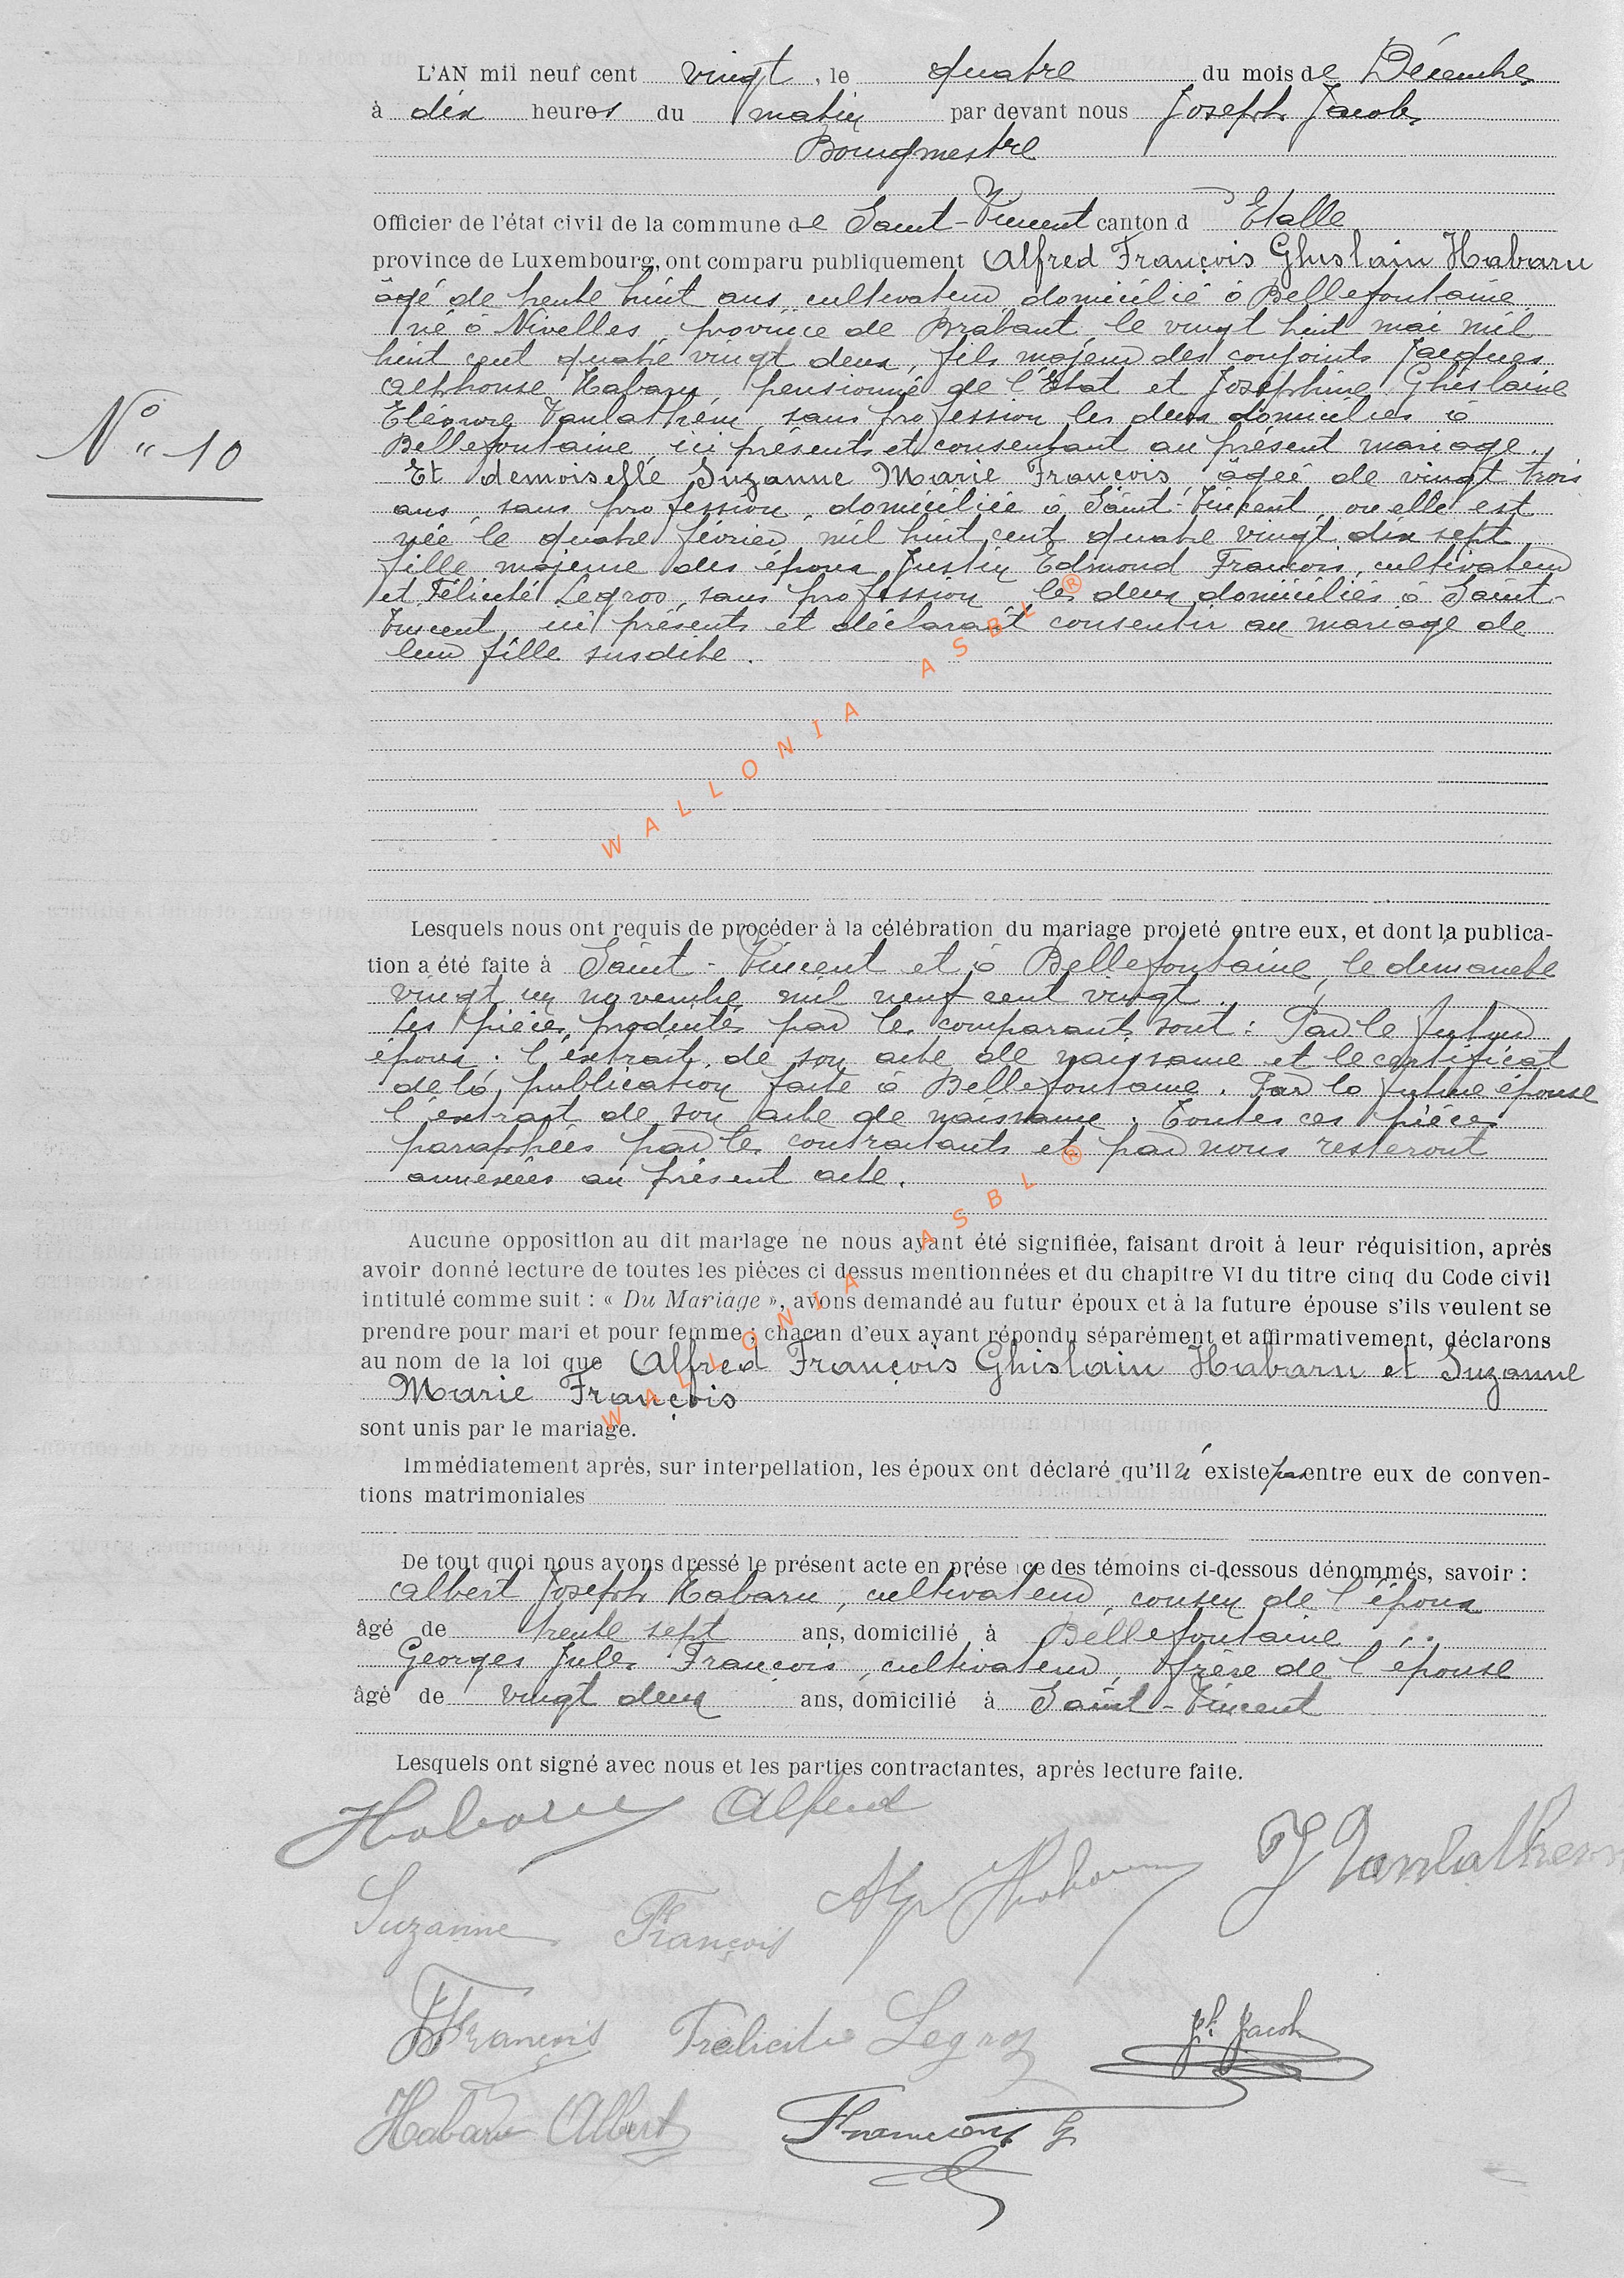 L'AN mil neuf cent vingt, le quatre du mois de Décembre
à dix heures du matin par devant nous Joseph Jacob,
Bourgmestre
Officier de l'état civil de la commune de Saint-Vincent canton d'Etalle
province de Luxembourg, ont comparu publiquement Alfred François Ghislain Habaru
âgé de trente huit ans, cultivateur domicilié à Bellefontaine
né à Nivelles, province de Brabant, le vingt huit mai mil
huit cent quatre vingt deux, fils majeur des conjoints Jacques
Alphonse Habaru, pensionné de l'Etat et Joséphine Ghislaine
Eléonore Vanlathem, sans profession, les deux domiciliés à
Bellefontaine, ici présents et consentant au présent mariage.
N° 10
Et demoiselle Suzanne Marie François, âgée de vingt trois
ans, sans profession, domiciliée à Saint-Vincent, où elle est
née le quatre février mil huit cent quatre vingt dix sept,
fille majeure des époux Justin Edmond François, cultivateur
et Félicité Legros, sans profession les deux domiciliés à Saint-
Vincent, ici présents et déclarant consentir au mariage de
leur fille susdite.
WALLONIA ASBL ®
Lesquels nous ont requis de procéder à la célébration du mariage projeté entre eux, et dont la publica-
tion a été faite à Saint-Vincent et à Bellefontaine, le dimanche
vingt un novembre mil neuf cent vingt.
Les pièces produites par les comparants sont : Par le futur
époux : l'extrait de son acte de naissance et le certificat
de la publication faite à Bellefontaine. Par la future épouse
l'extrait de son acte de naissance. Toutes ces pièces
paraphées par les contractants et par nous resteront
annexées au présent acte.
Aucune opposition au dit mariage ne nous ayant été signifiée, faisant droit à leur réquisition, après
avoir donné lecture de toutes les pièces ci dessus mentionnées et du chapitre VI du titre cinq du Code civil
intitulé comme suit : « Du Mariage », avons demandé au futur époux et à la future épouse s'ils veulent se
prendre pour mari et pour femme ; chacun d'eux ayant répondu séparément et affirmativement, déclarons
au nom de la loi que Alfred François Ghislain Habaru et Suzanne
Marie François
sont unis par le mariage.
WALLONIA ASBL ®
Immédiatement après, sur interpellation, les époux ont déclaré qu'il n'existe pas entre eux de conven-
tions matrimoniales
De tout quoi nous avons dressé le présent acte en présence des témoins ci-dessous dénommés, savoir :
Albert Joseph Habaru, cultivateur, cousin de l'époux
âgé de trente sept ans, domicilié à Bellefontaine
Georges Jules François, cultivateur, frère de l'épouse
âgé de vingt deux ans, domicilié à Saint-Vincent
Lesquels ont signé avec nous et les parties contractantes, après lecture faite.
Habaru Alfred
J Vanlathem
Alp Habaru
Suzanne François
J François Félicité Legros Jh Jacob
Habaru Albert François G